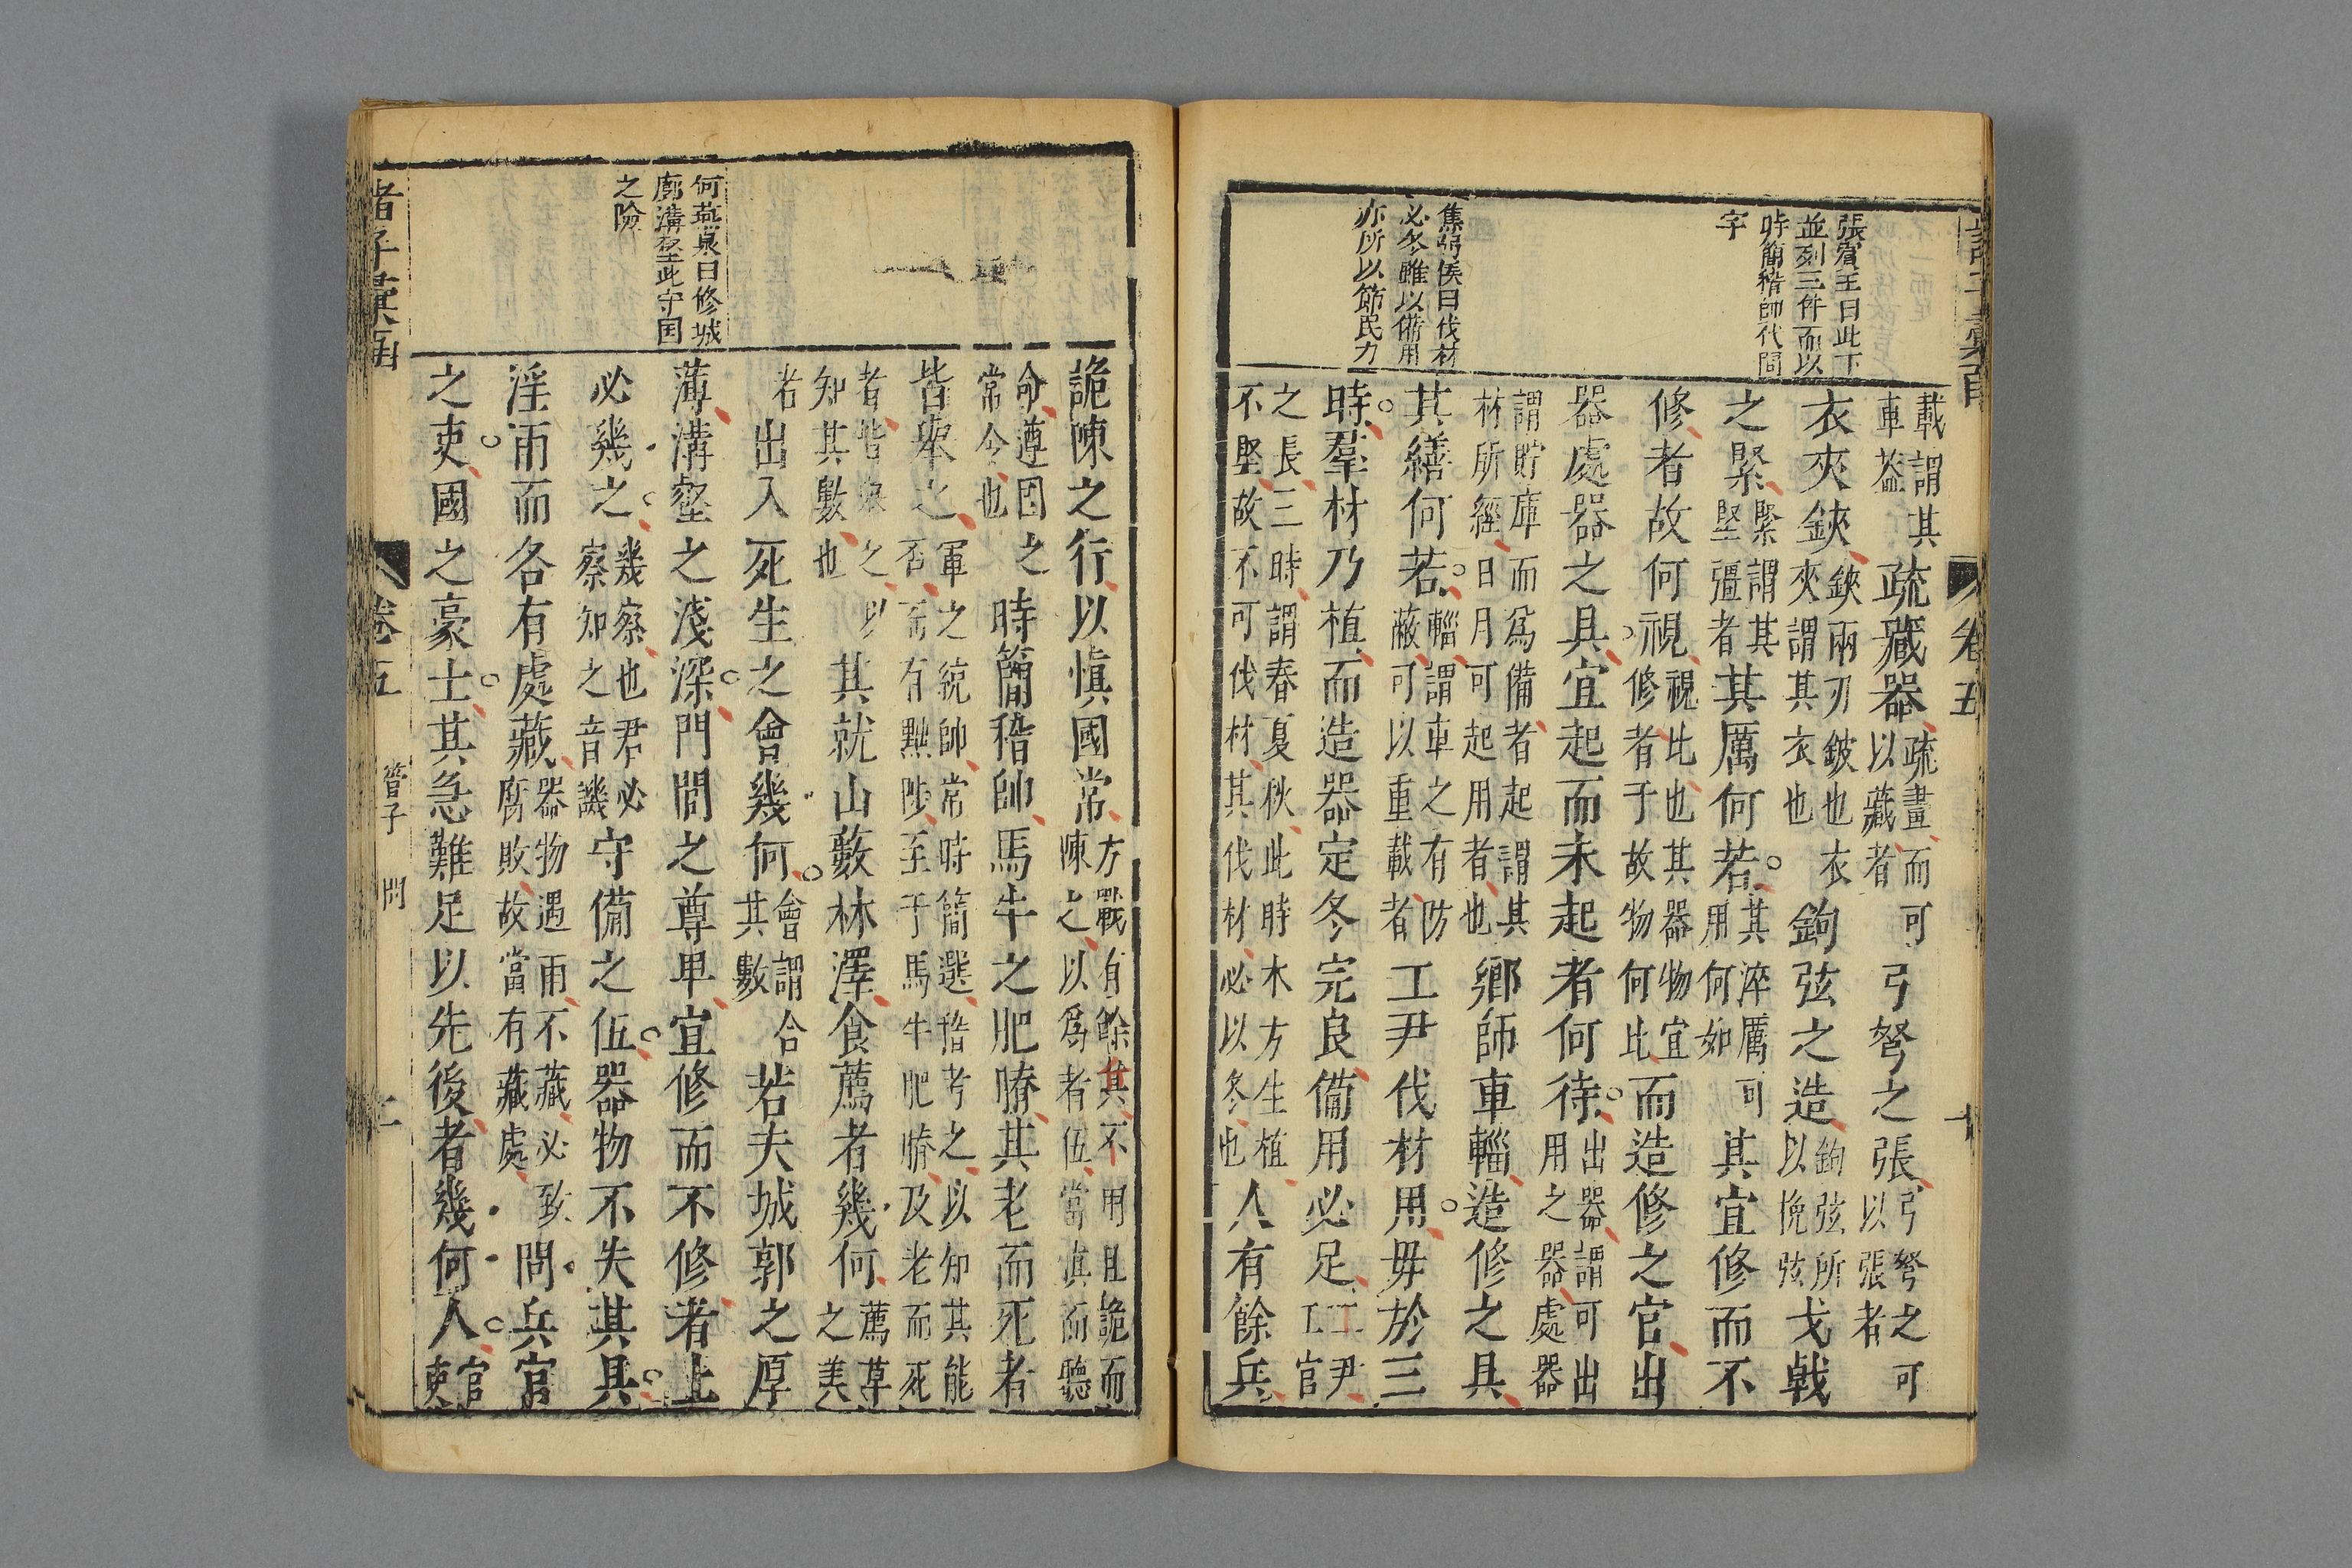 卷五
十
張賓王曰此下
並列三件而以
時簡稽帥代問
字
焦弱侯曰伐材
必冬雖以備用
亦所以節民力
載謂其車蓋疏藏器疏畫而可以藏者弓弩之張弓弩之可以張者
衣夾鋏鋏兩刃鈹也衣夾謂其衣也鉤弦之造鉤弦所以挽弦戈戟
之緊緊謂其堅彊者其厲何若其淬厲可用何如其宜修而不
修者故何視視比也其器物宜修者于故物何比而造修之官出
器處器之具宜起而未起者何待出器謂可出用之器處器
謂貯庫而爲備者起謂其材所經日月可起用者也鄉師車輜造修之具
其繕何若輜謂車之有防蔽可以重載者工尹伐材用毋於三
時羣材乃植而造器定冬完良備用必足工尹工官
之長三時謂春夏秋此時木方生植不堅故不可伐材其伐材必以冬也人有餘兵
何燕泉曰修城
廓溝壑此守囯
之險
詭陳之行以慎國常方戰有餘其不用且詭而陳之以爲者伍當慎而聽
命遵囯之常令也時簡稽帥馬牛之肥膌其老而死者
皆舉之軍之統帥常時簡選稽考之以知其能否而有黜陟至于馬牛肥膌及老而死
者皆舉之以知其數也其就山藪林澤食薦者幾何薦草之美
者出入死生之會幾何會謂合其數若夫城郭之厚
薄溝壑之淺深門閭之尊卑宜修而不修者上
必幾之幾察也君必察知之音譏守備之伍器物不失其具
淫雨而各有處藏器物遇雨不藏必致腐敗故當有藏處問兵官
之吏國之豪士其急難足以先後者幾何人官吏
諸子彙函
卷五
管子
問